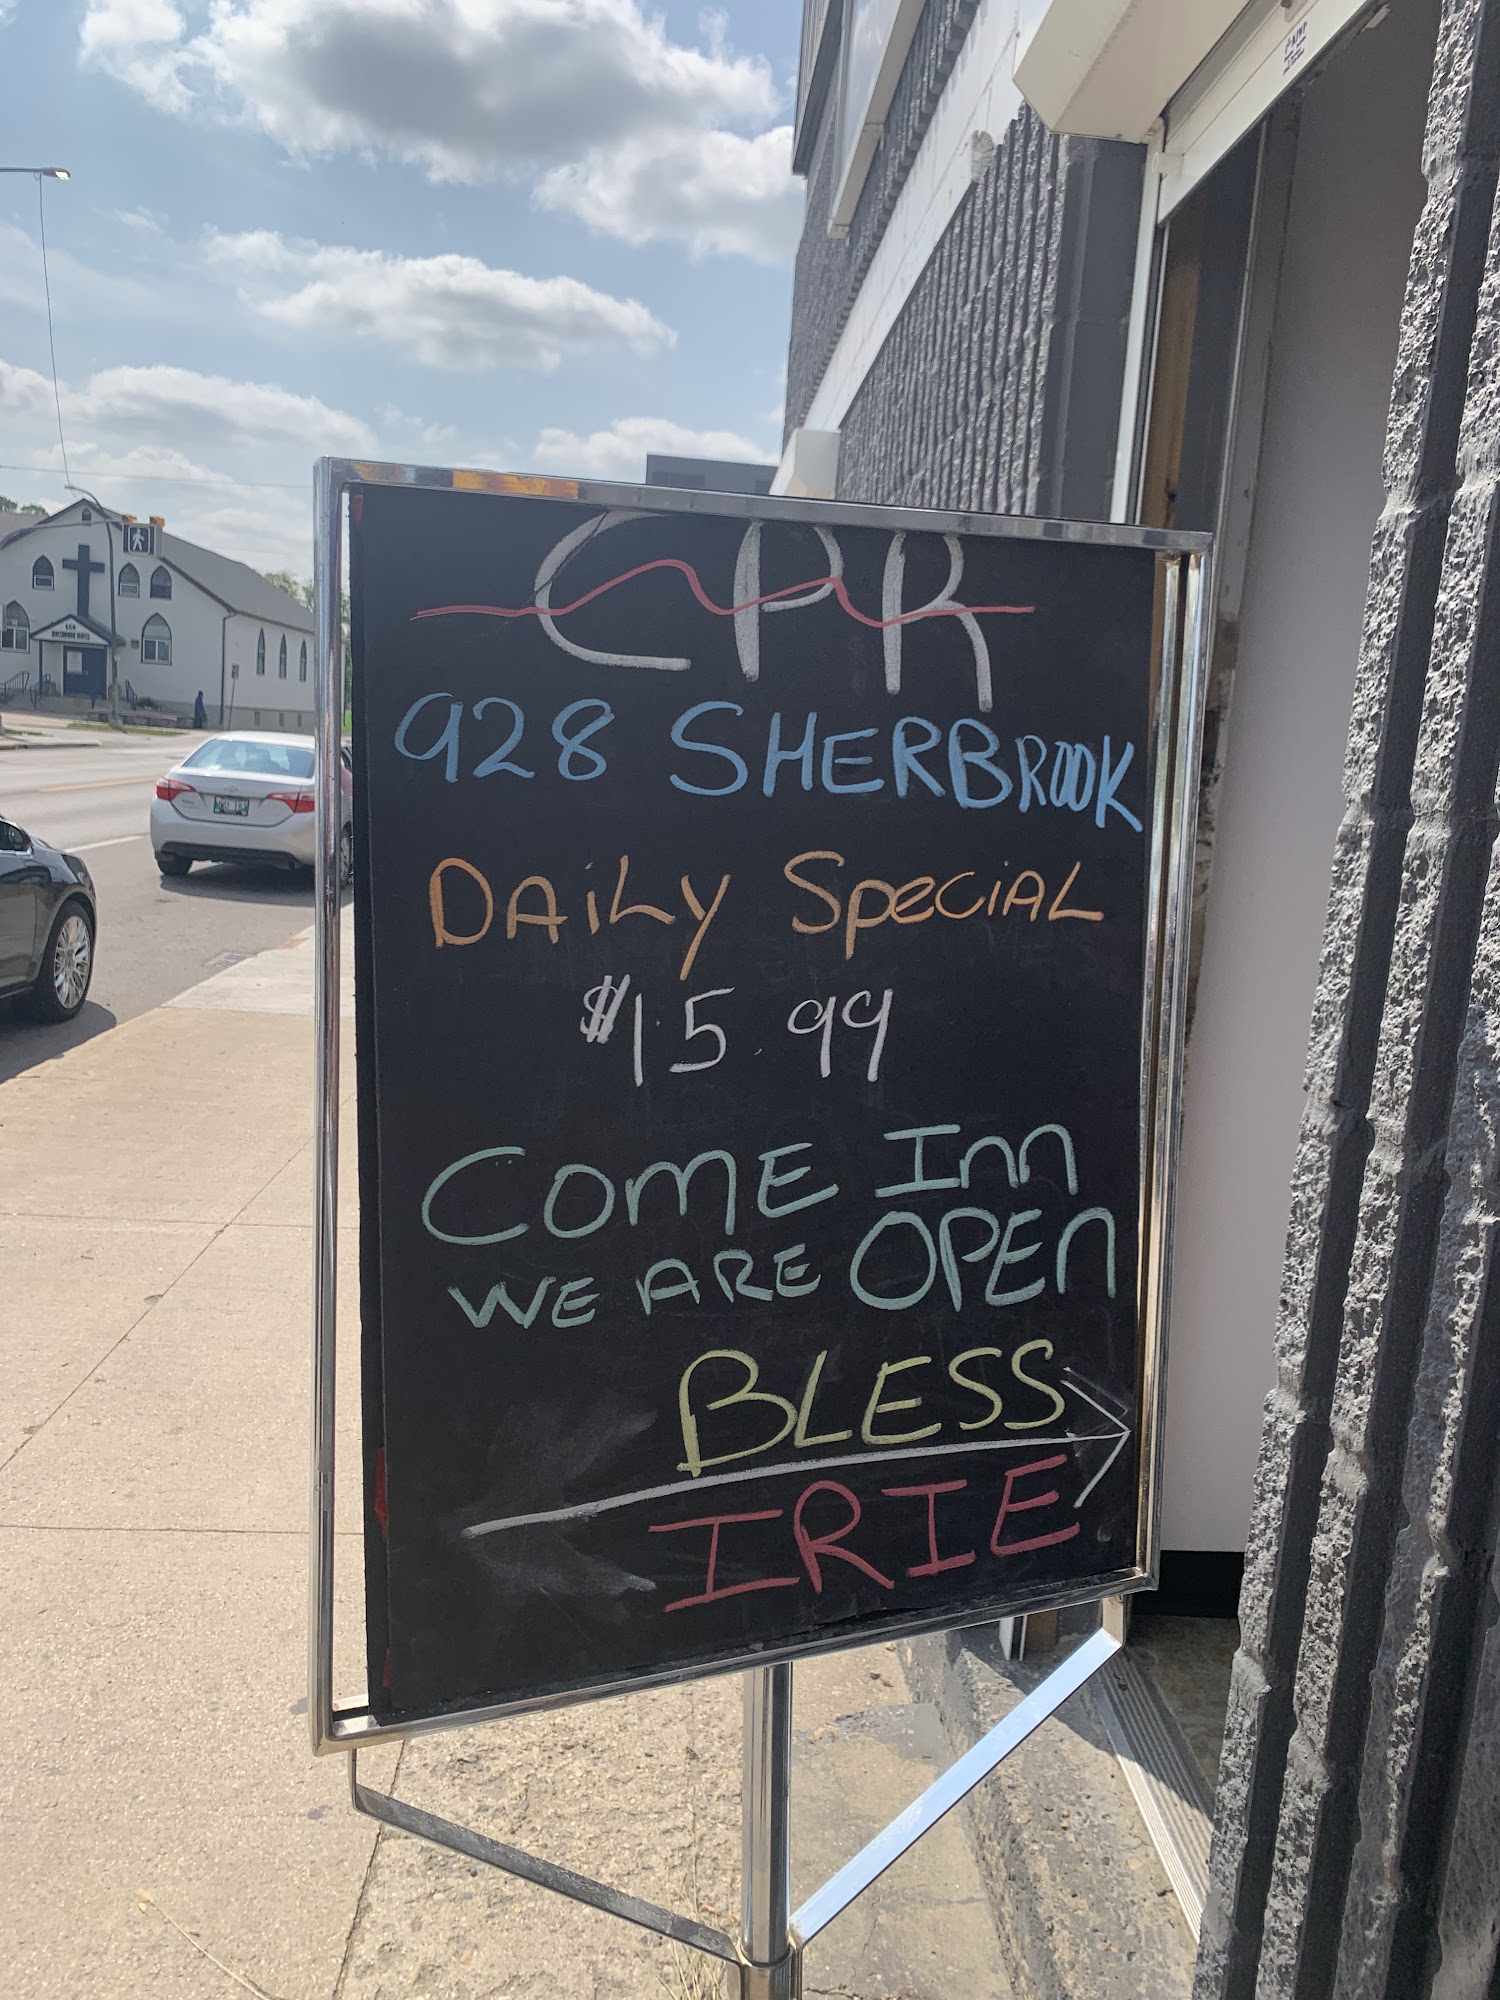 CPR
928 SHERBROOK
DAiLy SpeciAL
$15.99
COME Inn
WE ARE OPEn
BLESS
IRIE